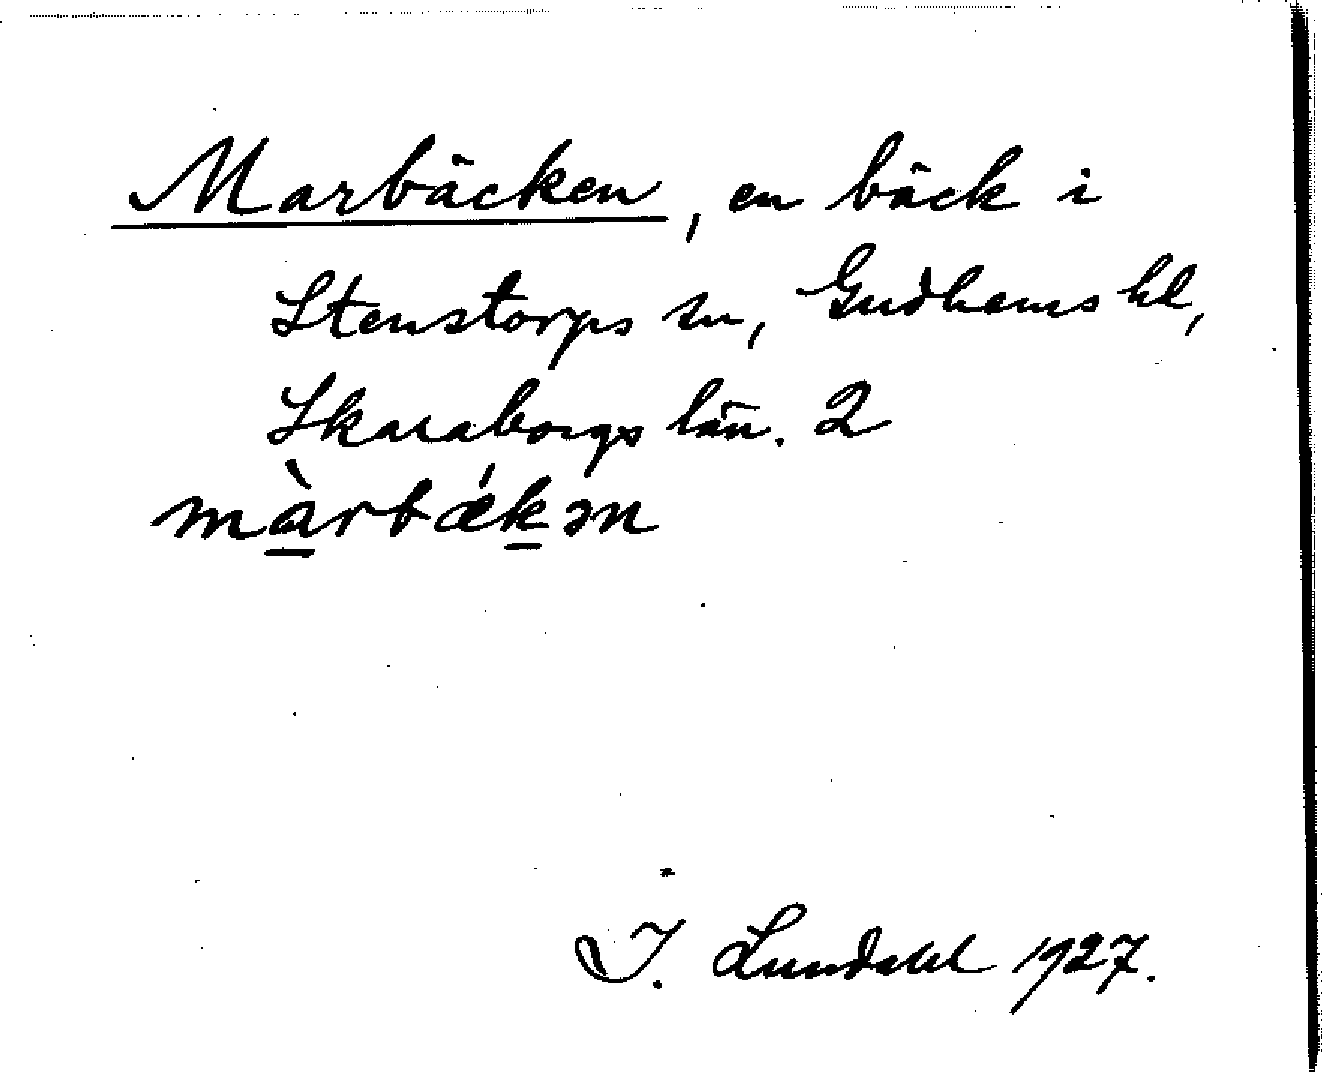 Marbäcken, en bäck i
Stenstorps sn, Gudhems hd,
Skaraborgs län. 2
màrbǽkən
I. Lundahl 1927.